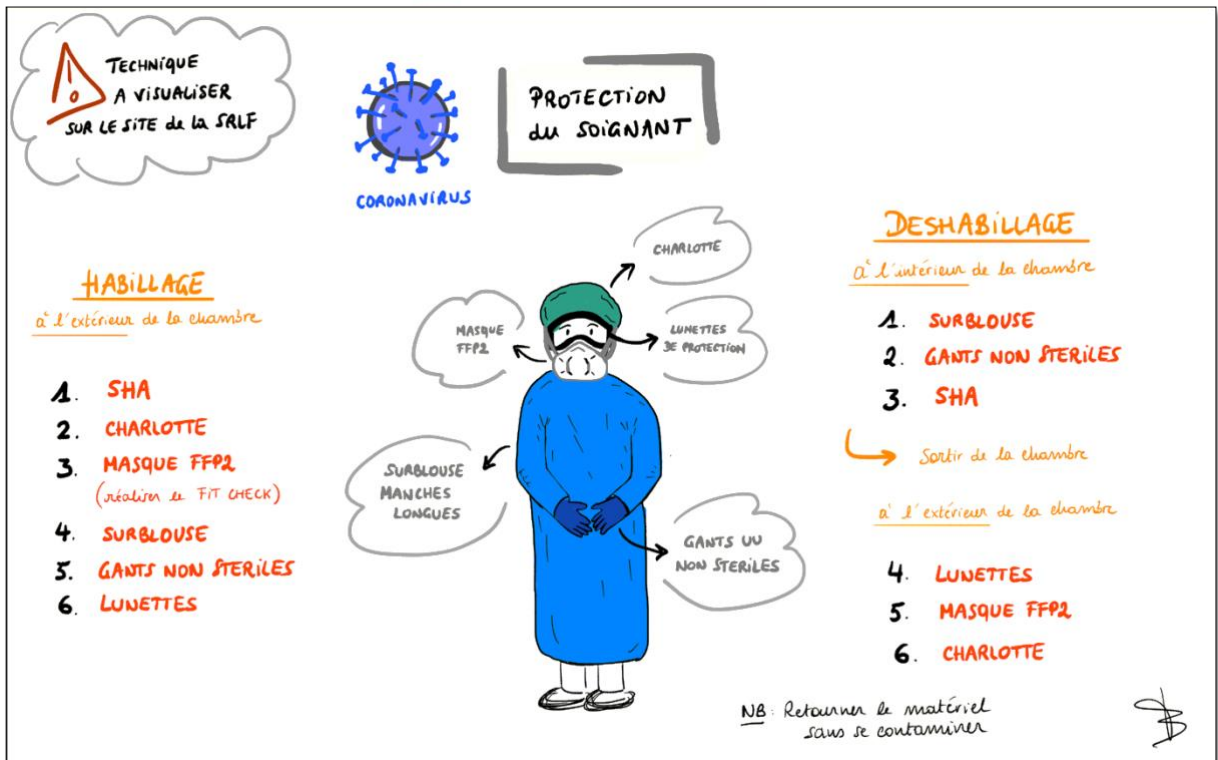 TECHNIQUE
A VISUALISER
SUR LE SITE de la SRLF
CORONAVIRUS
PROTECTION
du SOIGNANT
HABILLAGE
à l'extérieur de la chambre
1. SHA
2. CHARLOTTE
3. MASQUE FFP2
(réaliser le FIT CHECK)
4. SURBLOUSE
5. GANTS NON STERILES
6. LUNETTES
CHARLOTTE
MASQUE
FFP2
LUNETTES
DE PROTECTION
SURBLOUSE
MANCHES
LONGUES
GANTS UU
NON STERILES
DESHABILLAGE
à l'intérieur de la chambre
1. SURBLOUSE
2. GANTS NON STERILES
3. SHA
Sortir de la chambre
à l'extérieur de la chambre
4. LUNETTES
5. MASQUE FFP2
6. CHARLOTTE
NB: Retourner le matériel
sans se contaminer